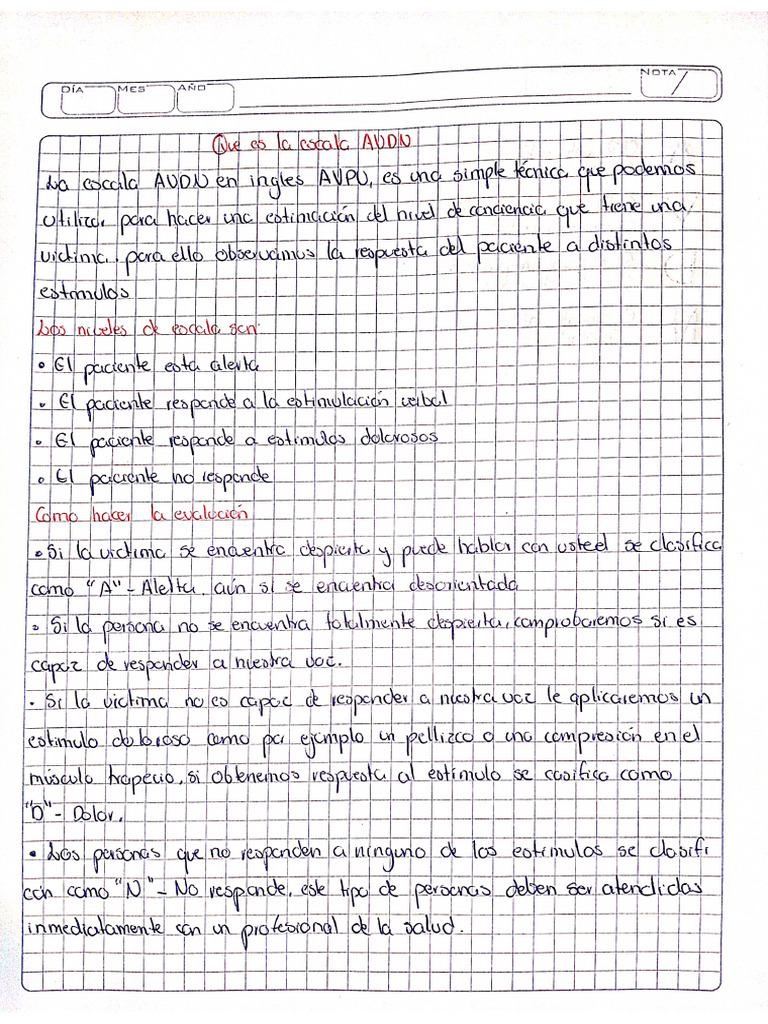 DÍA MES AÑO NOTA
Que es la escala AVDN
La escala AVDN en ingles AVPU, es una simple técnica que podemos
utilizar para hacer una estimación del nivel de conciencia que tiene una
victima, para ello observamos la respuesta del paciente a distintos
estimulos
Los niveles de escala son:
• El paciente esta alerta
• El paciente responde a la estimulación verbal
• El paciente responde a estimulos dolorosos
• El paciente no responde
Como hacer la evalución
• Si la victima se encuentra despierta y puede hablar con usteel se clasifica
como "A" - Alelta, aún si se encuentra descrientada
• Si la persona no se encuentra totalmente despierta, comprobaremos si es
capaz de responder a nuestra voz.
• Si la victima no es capaz de responder a nuestra voz le aplicaremos un
estimulo doloroso como por ejemplo un pellizco o una compresión en el
músculo trapecio, si obtenemos respuesta al estímulo se casifica como
"D" - Dolor.
• Las personas que no responden a ninguno de los estimulos se clasifi
can como "N" - No responde, este tipo de personas deben ser atendidas
inmediatamente con un profesional de la salud.